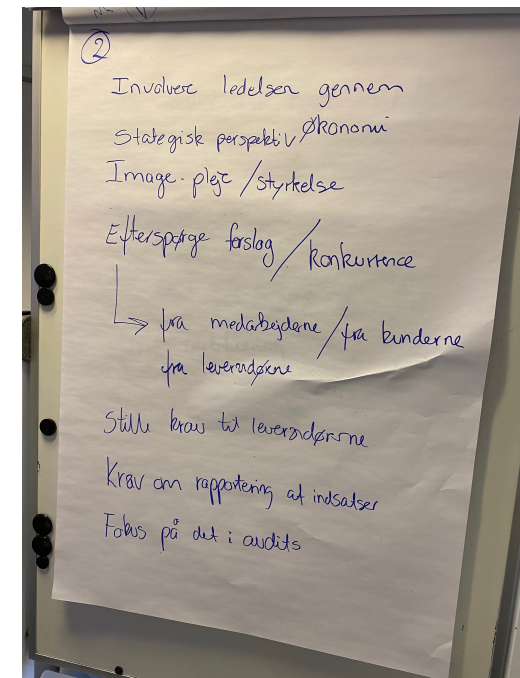 2
Involvere ledelsen gennem
Stategisk perspektiv, Økonomi
Image-pleje/styrkelse
Efterspørge forslag/konkurrence
→ fra medarbejderne/fra kunderne
fra leverandørerne
Stille krav til leverandørerne
Krav om rapportering af indsatser
Fokus på det i audits